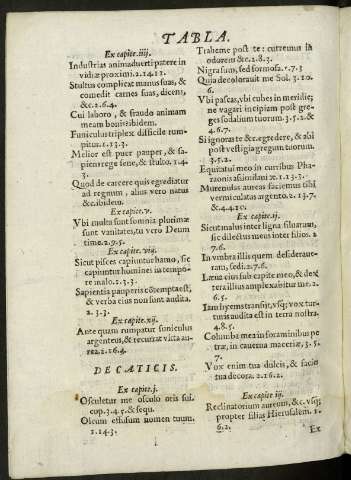 TABLA.
Ex capite.iiij.
Industrias animaduerti patere in
vidiæ proximi.2.14.11.
Stultus complicat manus suas, &
comedit carnes suas, dicens,
&c.2.6.4.
Cui laboro, & fraudo animam
meam bonis?ibidem.
Funiculus triplex difficile rum-
pitur.1.13.3.
Melior est puer pauper, & sa-
piens rege sene, & stulto.1.4
3.
Quod de carcere quis egrediatur
ad regnum, alius vero natus
&c.ibidem.
Ex capite.v.
Vbi multa sunt somnia plurimæ
sunt vanitates, tu vero Deum
time.2.7.5.
Ex capite.viij.
Sicut pisces capiuntur hamo, sic
capiuntur homines in tempo-
re malo.1.3.3.
Sapientia pauperis cõtempta est,
& verba eius non sunt audita.
2.3.3.
Ex capite.xij.
Ante quam rumpatur funiculus
argenteus, & recurrat vitta au-
rea.2.16.4.
DE CATICIS.
Ex capite.j.
Osculetur me osculo oris sui.
cup.3.4.5.& sequ.
Oleum effusum nomen tuum.
1.14.3.
Traheme post te: curremus in
odorem &c.2.8.3.
Nigra sum, sed formosa.1.7.3
Quia decolorauit me Sol.3.10.
6.
Vbi pascas, vbi cubes in meridie;
ne vagari incipiam post gre-
ges sodalium tuorum.3.5.2.&
4.6.7.
Si ignoras te &c.egredere, & abi
post vestigia gregum tuorum.
3.5.2.
Equitatui meo in curribus Pha-
raonis assimilaui &.1.13.3.
Murenulas aureas faciemus tibi
vermiculatas argento.2.13.7.
& 4.4.10.
Ex capite.ij.
Sicut malus inter ligna siluarum,
sic dilectus meus inter filios.2
7.6.
In vmbra illius quem desideraue-
ram, sedi.2.7.6.
Læua eius sub capite meo, & dex
tera illius amplexabitur me.2.
6.5.
Iam hyems transijt, vsq; vox tur-
turis audita est in terra nostra.
4.8.5.
Columba mea in foraminibus pe
træ, in cauerna maceriæ,3.5.
7.
Vox enim tua dulcis, & facies
tua decora.2.16.2.
Ex capite iij.
Reclinatorium aureum, &c.vsq;
propter filias Hierusalem.1.
6.2.
Ex